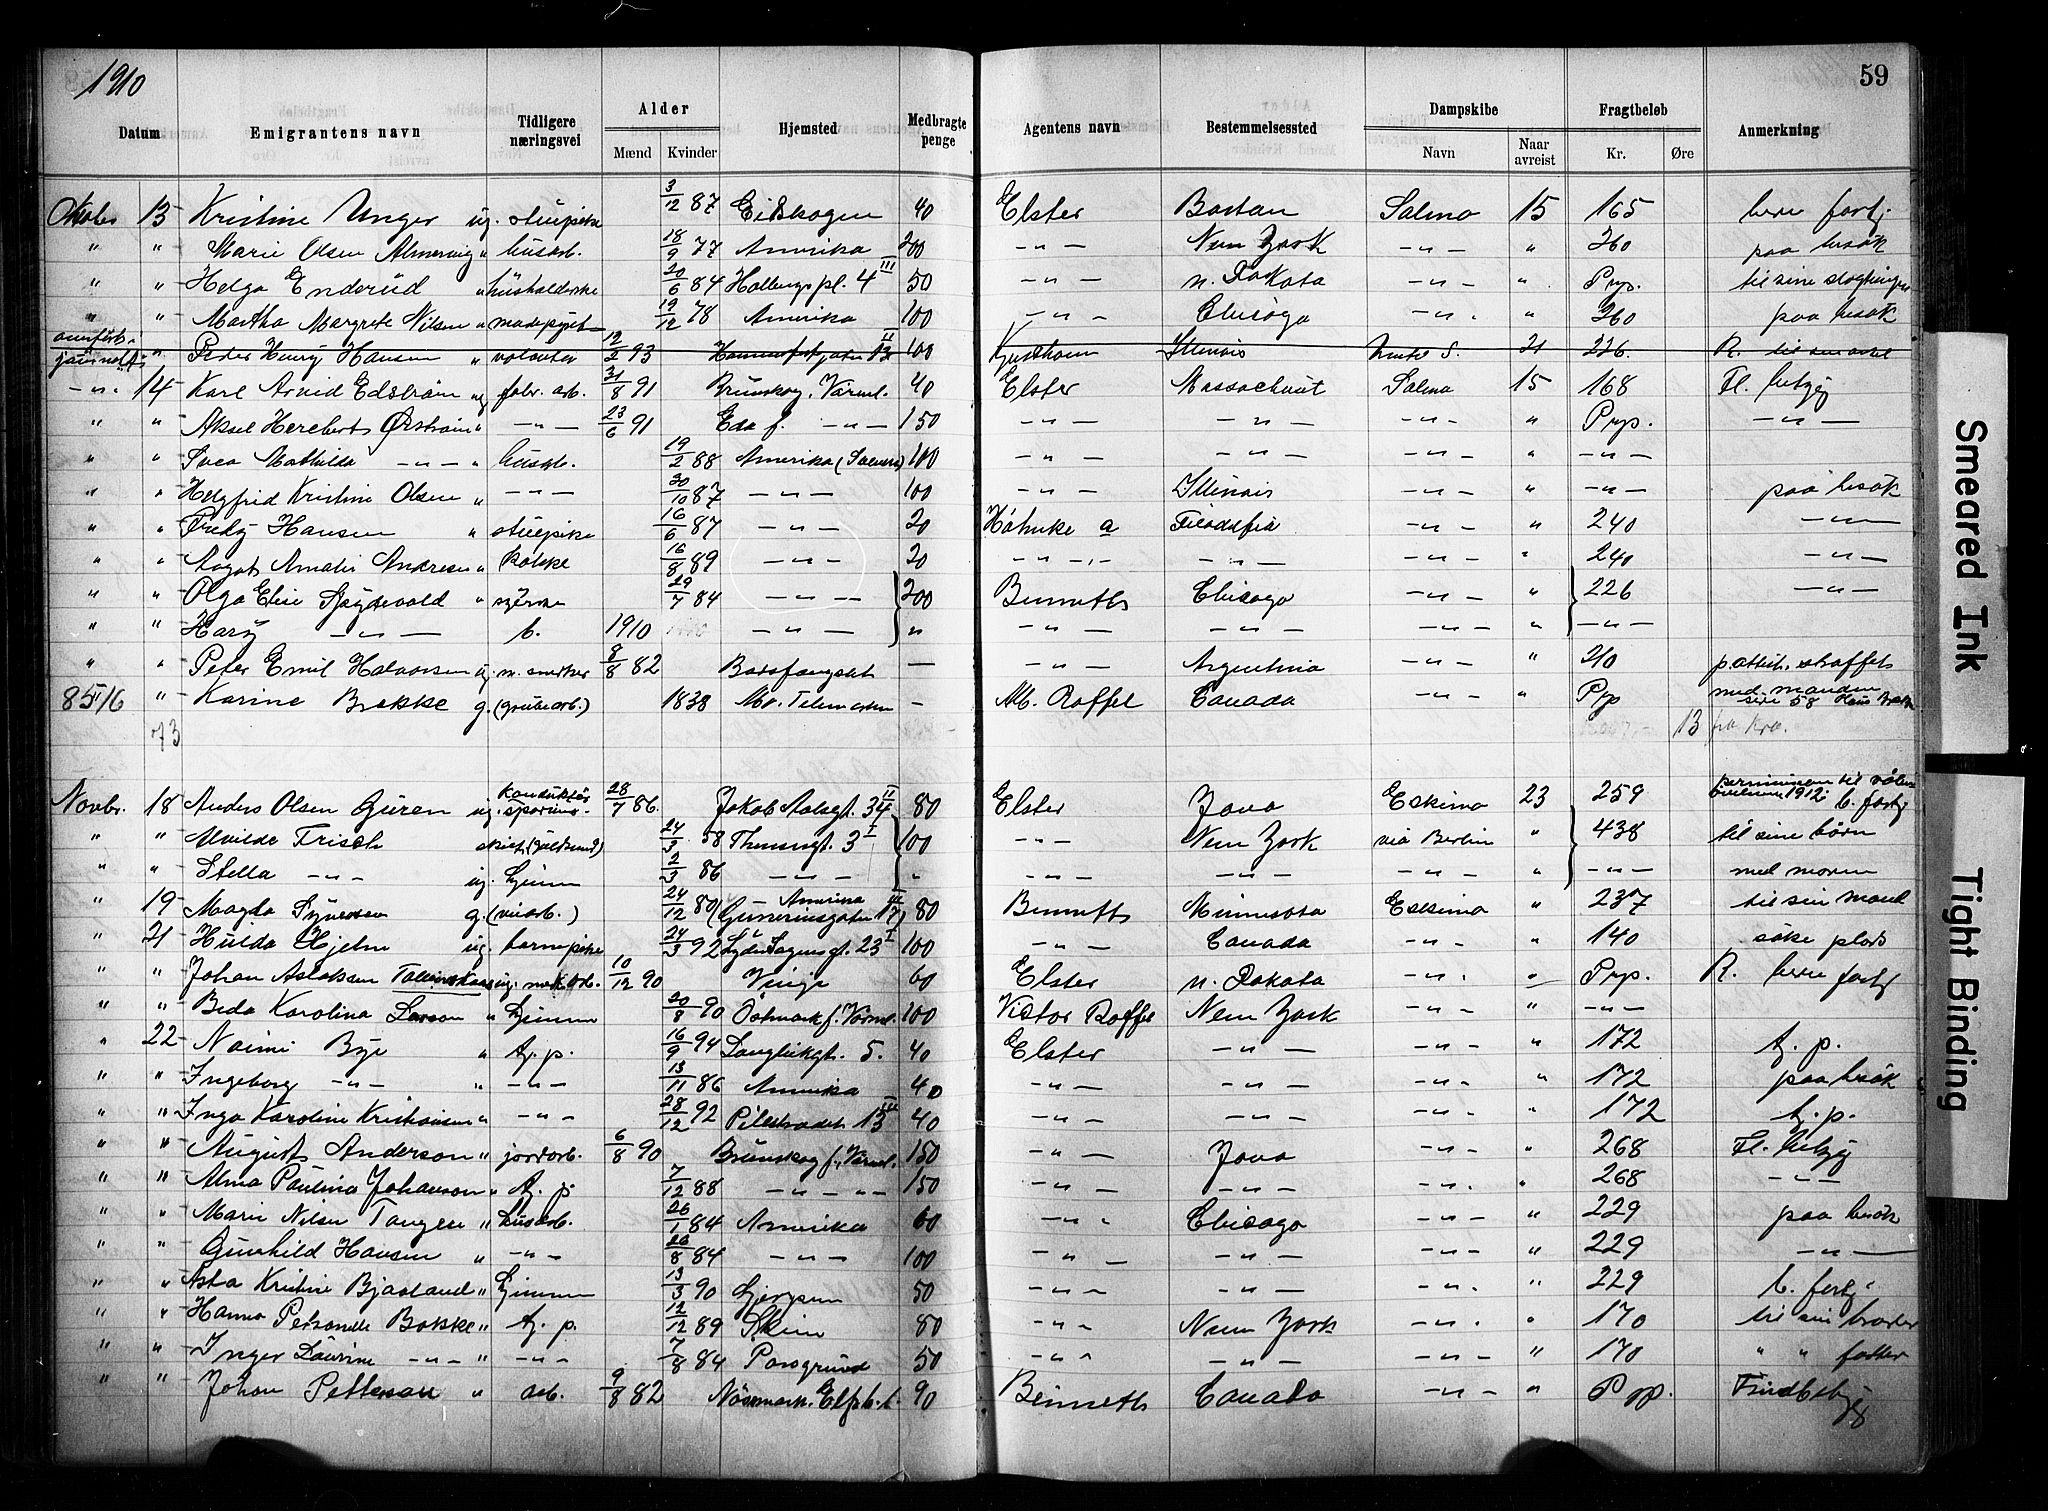 1910
59
Datum Emigrantens navn Tidligere næringsvei Alder Mænd Kvinder Hjemsted Medbragte penge Agentens navn Bestemmelsessted Dampskibe Navn Naar avreist Fragtbeløb Kr. Øre Anmerkning
Oktober 13 Kristine Unger ug. stuepike 3/12 87 Eidskogen 40 Elster Bostan Salmo 15 165 bere fortj.
" " Marie Olsen Almering " husarb. 18/9 77 Amerika 200 — " — New York — " — " 260 paa besøk
" " Helga Enderud " husholderske 20/6 84 Holbergs pl. 4 III 50 — " — n. Dakota — " — " Prp. til sine slegtninger
" " Martha Margrete Nilsen " 19/12 78 Amerika 100 — " — Chicago — " — " 260 paa besøk
" Peder Harry Hansen " 12/2 93 Hammerfestgaten 13 II 100 Illinois 21 226. R.
— " — 14 Karl Arvid Edström ug fabr. arb. 31/8 91 Brunskog, Värml. 40 Elster Massachust Salmo 15 168 Fl. betyg
" " Aksel Herebert Öström " — " — 23/6 91 Eda f. — " — 150 — " — — " — — " — " Prp. — " —
" " Svea Mathilda — " — " husarb. 19/2 88 Amerika 100 — " — — " — — " — " — " —
" " Helgfrid Kristine Olsen " — " — 30/10 87 — " — 100 — " — Illinois — " — " — " — paa besøk
" " Fredy Hansen " stuepike 16/6 87 — " — 20 Höhnke a — " — " 240 — " —
" " Aagot Amalie Andresen " kokke 16/8 89 — " — 20 — " — — " — " 240 — " —
" " Olga Elise Spydevold " syerske 29/7 84 — " — 200 Bennetts Chicago — " — " 226 — " —
" " Harry — " — b. 1910 — " — " — " — — " — — " — " — " —
" " Peter Emil Halvorsen ug. 8/8 82 Bodsfængslet — — " — Argentina — " — " 210
85 II/6 " Karine Brekke g. (grubearb.) 1838 Mo. Telemarken - Alb. Roffel Canada — " — " Prp med manden
73 13 fra Kra.
Novbr. 18 Anders Olsen Guren ug. konduktør 28/7 86. Jakob Aalsgt. 34 II 80 Elster Jova Eskimo 23 259 1912 b. fortj
" " Alvilde Frisch 24/3 58 Thereses gt. 3 I 100 — " — New York via Berlin " 438 til sine børn
" " Stella — " — ug. hjemme 2/3 86 — " — " — " — — " — — " — " — " — med moren
" 19 Magda Synersen g. 24/12 80 Amerika (Gunerius gaten 17) 80 Bennetts Minnisota Eskimo " 237 til sin mand
" 21 Hulda Hjelm ug. barnepike 24/3 92 Lyder Sagens gt. 23 I 100 — " — Canada — " — " 140 søke plads
" " Johan Aslaksen ug. 10/12 90 Vinje 60 Elster n. Dakota — " — " Prp. R. bere fortj
" " Beda Karolina Larson " hjemme 20/8 90 Östmark f. Värml. 100 Victor Roffel New York — " — " — " —
" 22 Naimi Bye " tj. p. 16/9 94 Langliksgt. 5. 40 Elster — " — — " — " 172 tj. p.
" " Ingeborg — " — " — " — 13/11 86 Amerika 40 — " — — " — — " — " 172 paa besøk
" " Inga Karoline Kristiansen " — " — 28/12 92 Pilestrædet 13 III 40 — " — — " — — " — " 172 tj. p.
" " August Anderson " jordarb. 6/8 90 Brunskog f. Värml. 150 — " — Jova — " — " 268 Fl. betyg
" " Alma Paulina Johanson " tj. p 7/12 88 — " — " — 150 — " — — " — — " — " 268 — " —
" " Marie Nilsen Tangen " husarb. 26/1 84 Amerika 60 — " — Chicago — " — " 229 paa besøk
" " Gunhild Hansen " — " — 26/8 84 — " — 100 — " — — " — — " — " 229 — " —
" " Asta Kristine Bjaaland " hjemme 13/3 90 Gjerpen 50 — " — — " — — " — " 229 b. fortj.
" " Hanna Petronelle Bakke " tj. p. 12/12 89 Skien 80 — " — New York — " — " 170 til sin broder
" " Inger Laurine — " — " — " — 7/8 84 Porsgrund 50 — " — — " — — " — " 170 " " fetter
" " Johan Petterson " arb. 9/8 82 90 Bennetts Canada — " — " Prp.
Smeared Ink
Tight Binding